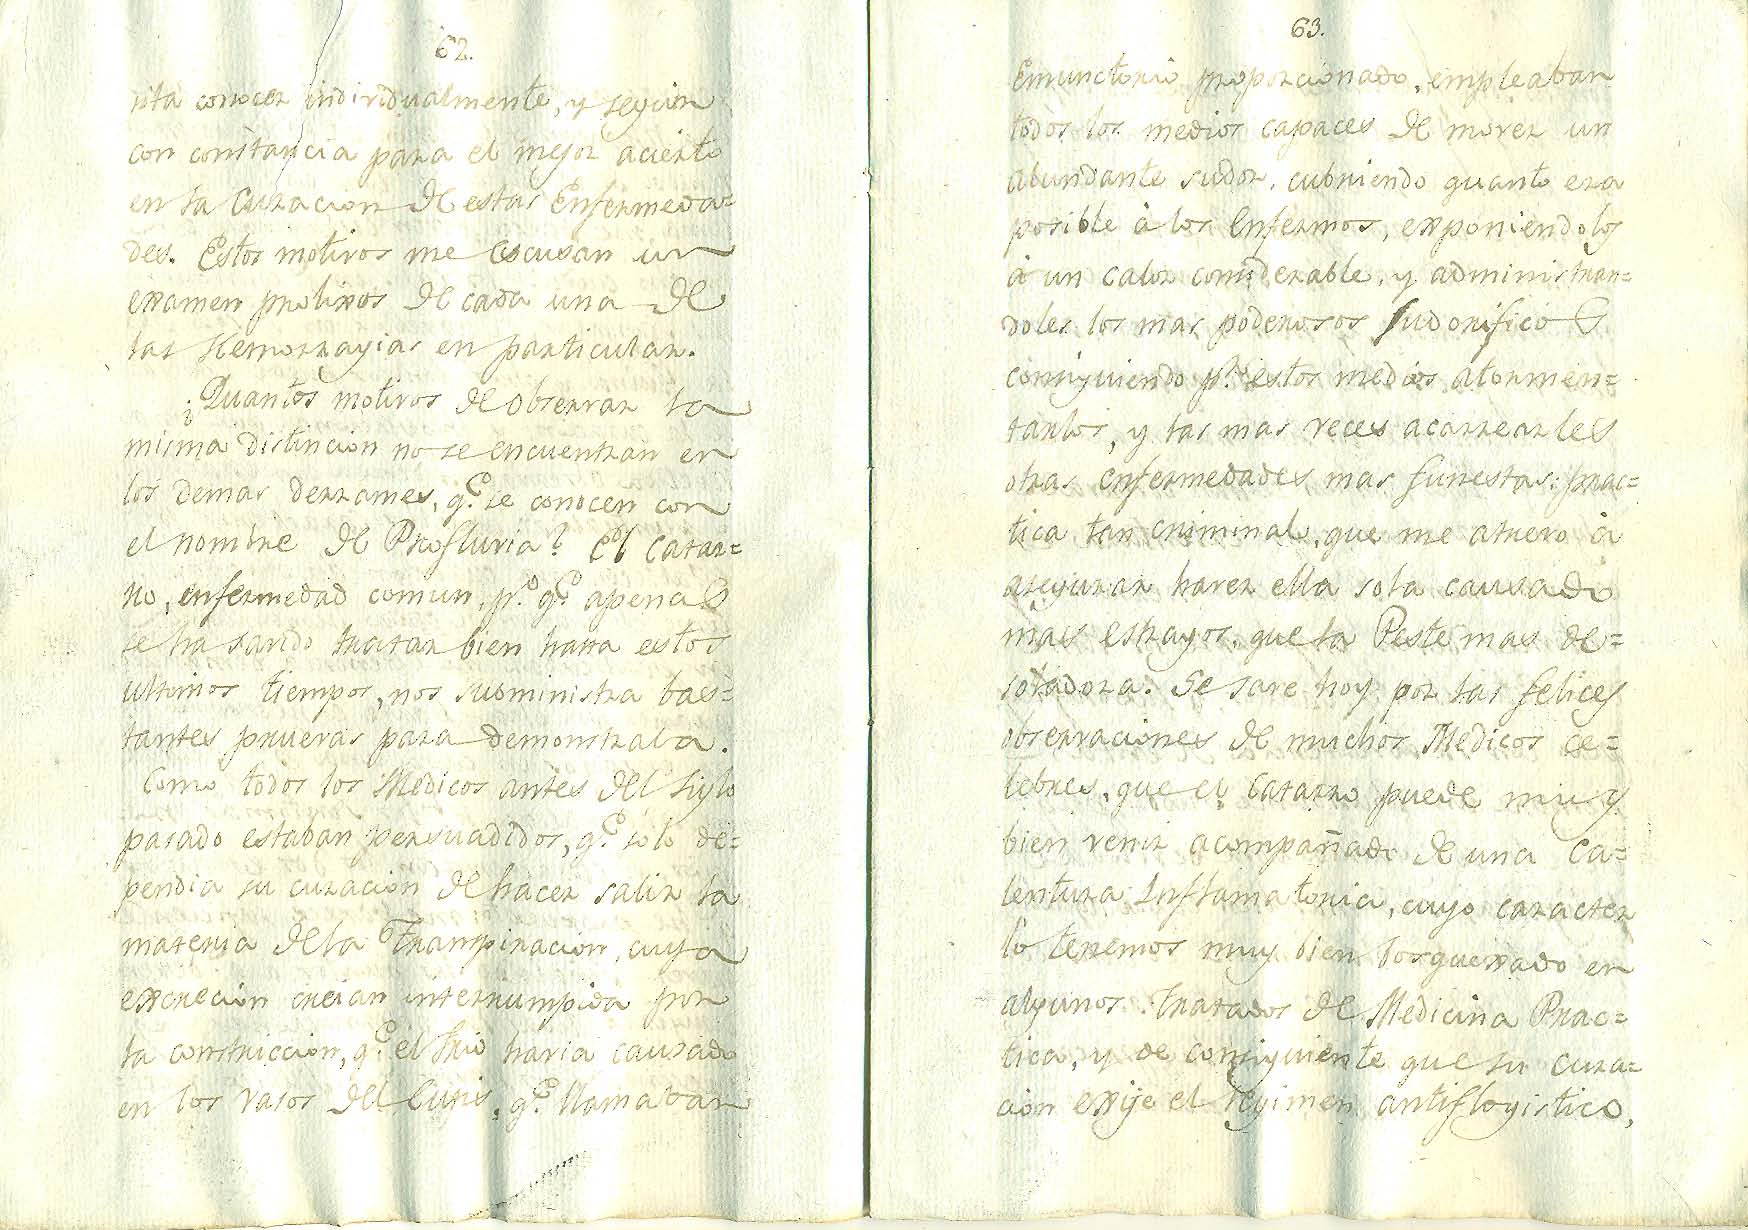 62.
sita conocer individualmente, y seguir
con constancia para el mejor acierto
en la Curacion de estas Enfermeda=
des. Estos motivos me escusan un
examen prolixos de cada una de
las Hemorragias en particular.
¿Quantos motivos de observar la
misma distincion no se encuentran en
los demas derrames, q.e se conocen con
el nombre de Profluvia? El Catar=
ro, enfermedad comun, p.o q.e apenas
se ha savido tratar bien hasta estos
ultimos tiempos, nos suministra bas=
tantes pruevas para demonstrarla.
Como todos los Medicos antes del siglo
pasado estaban persuadidos, q.e solo de=
pendia su curacion de hacer salir la
materia de la Transpiracion, cuya
excrecion creian interrumpida por
la constriccion, q.e el frio havia causado
en los vasos del Cutis, q.e llamavan
63.
Emunctorio proporcionado, empleaban
todos los medios capaces de mover un
abundante sudor, cubriendo quanto era
posible à los Enfermos, exponiendolos
à un calor considerable, y administran=
doles los mas poderosos sudorificos
consiguiendo p.r estos medios atormen=
tarlos, y las mas veces acarrearles
otras enfermedades mas funestas: prac=
tica tan criminal, que me atrevo à
asegurar haver ella sola causado
mas estragos, que la Peste mas de=
soladora. Se save hoy por las felices
observaciones de muchos Medicos ce=
lebres, que el Catarro puede muy
bien venir acompañado de una Ca=
lentura Inflamatoria, cuyo caracter
lo tenemos muy bien bosquexado en
algunos tratados de Medicina Prac=
tica, y de consiguiente que su cura=
cion exije el regimen antiflogistico,